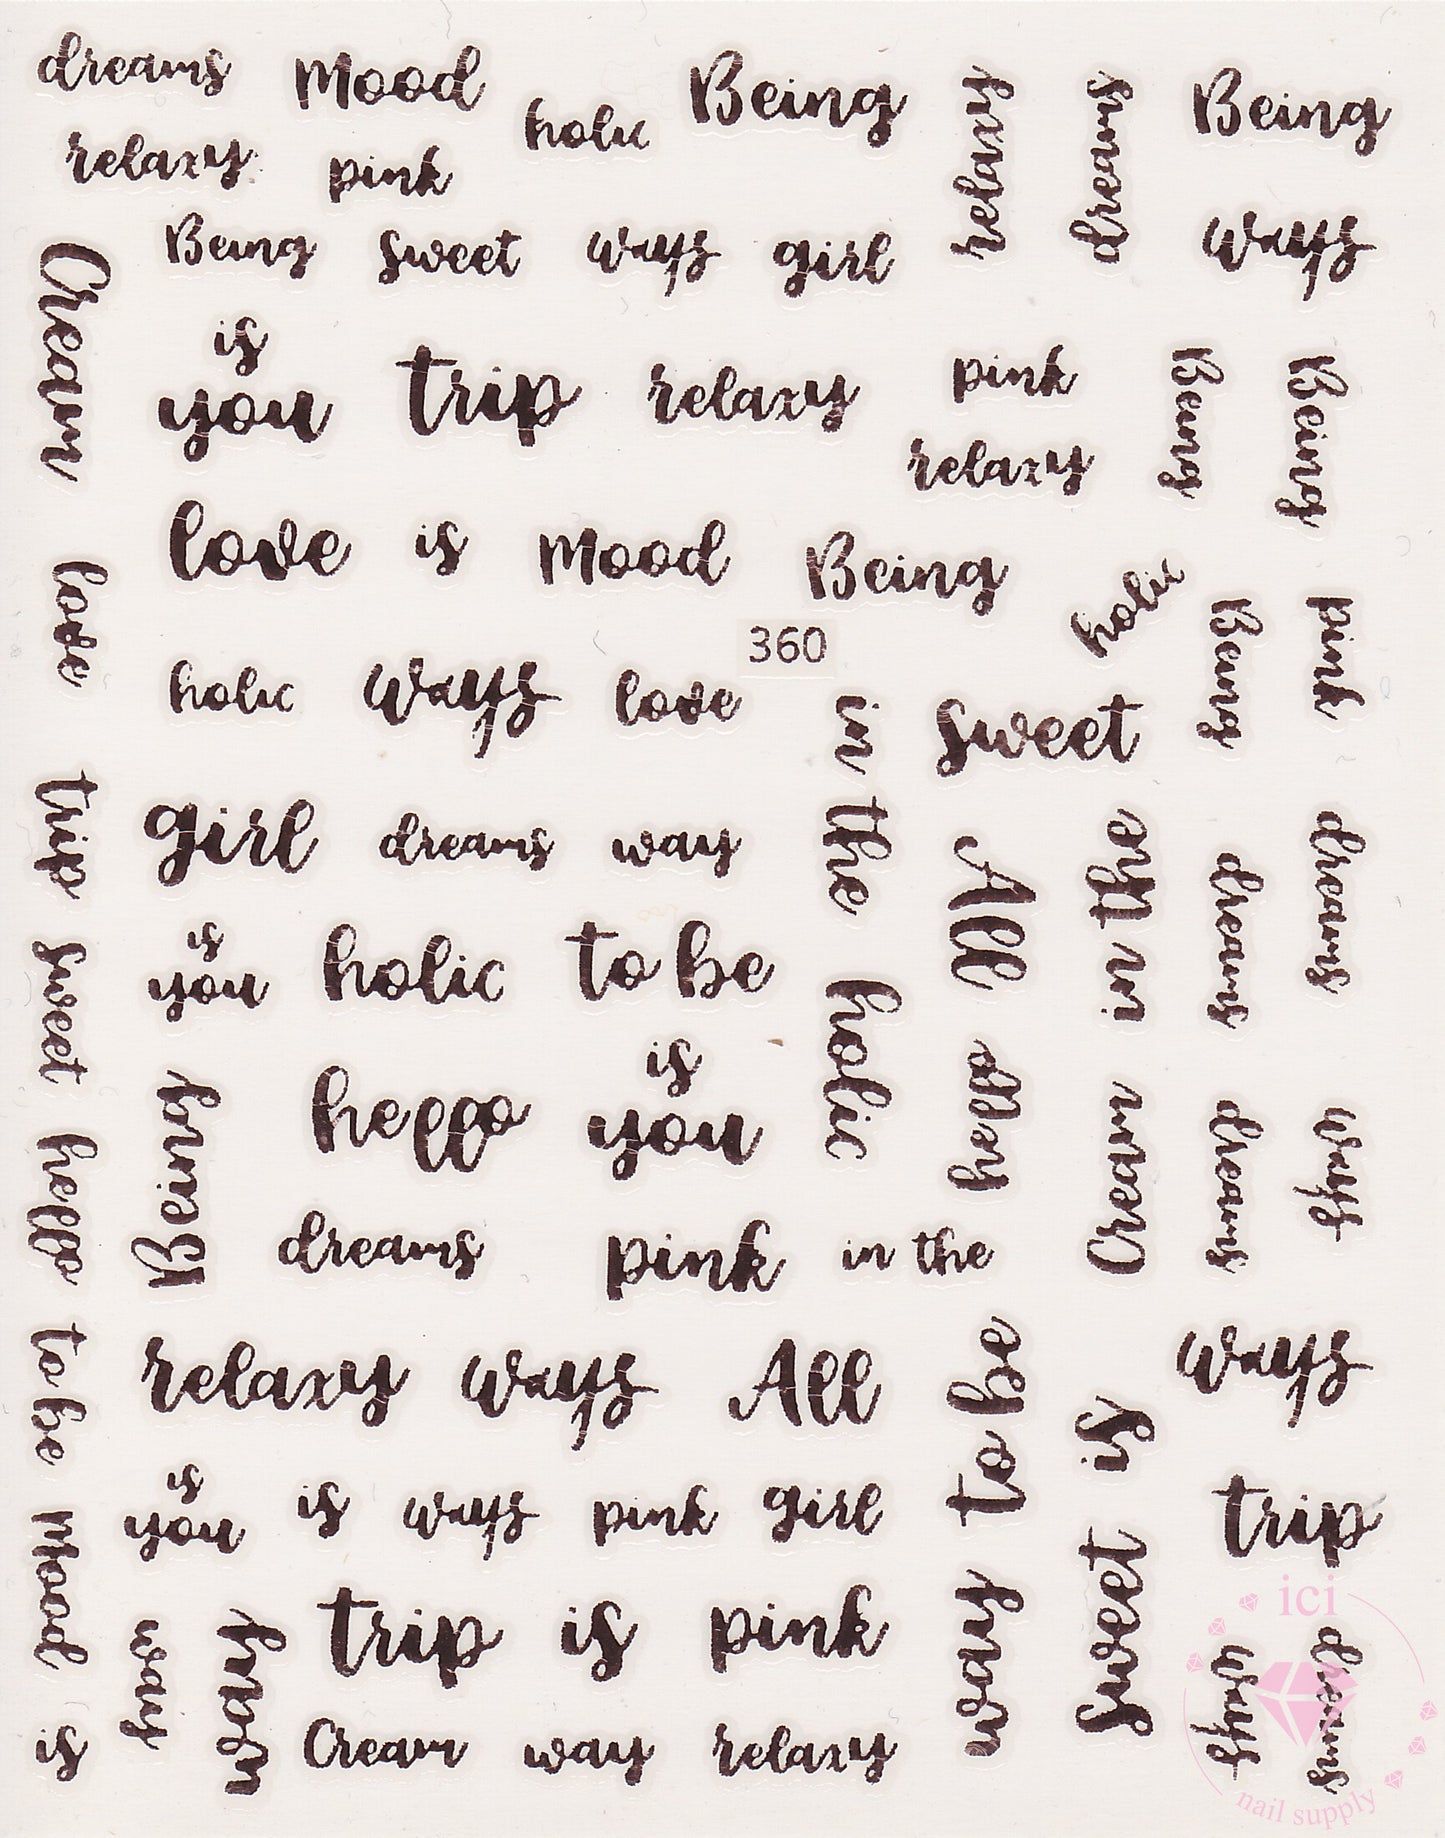 dreams Mood holic Being relaxy dreams Being
relaxy pink
Cream Being sweet ways girl ways
is
you trip relaxy pink Being Being
relaxy
love love is Mood Being holic Being pink
360
holic ways love in the sweet
trip girl dreams way All in the dreams dreams
sweet is
you holic to be holic
hello Being hello is
you hello Cream dreams ways
dreams pink in the
to be relaxy ways All to be is ways
Mood is
you is ways pink girl way sweet trip
way
trip is pink ways dreams
is Cream way relaxy
ici
nail supply